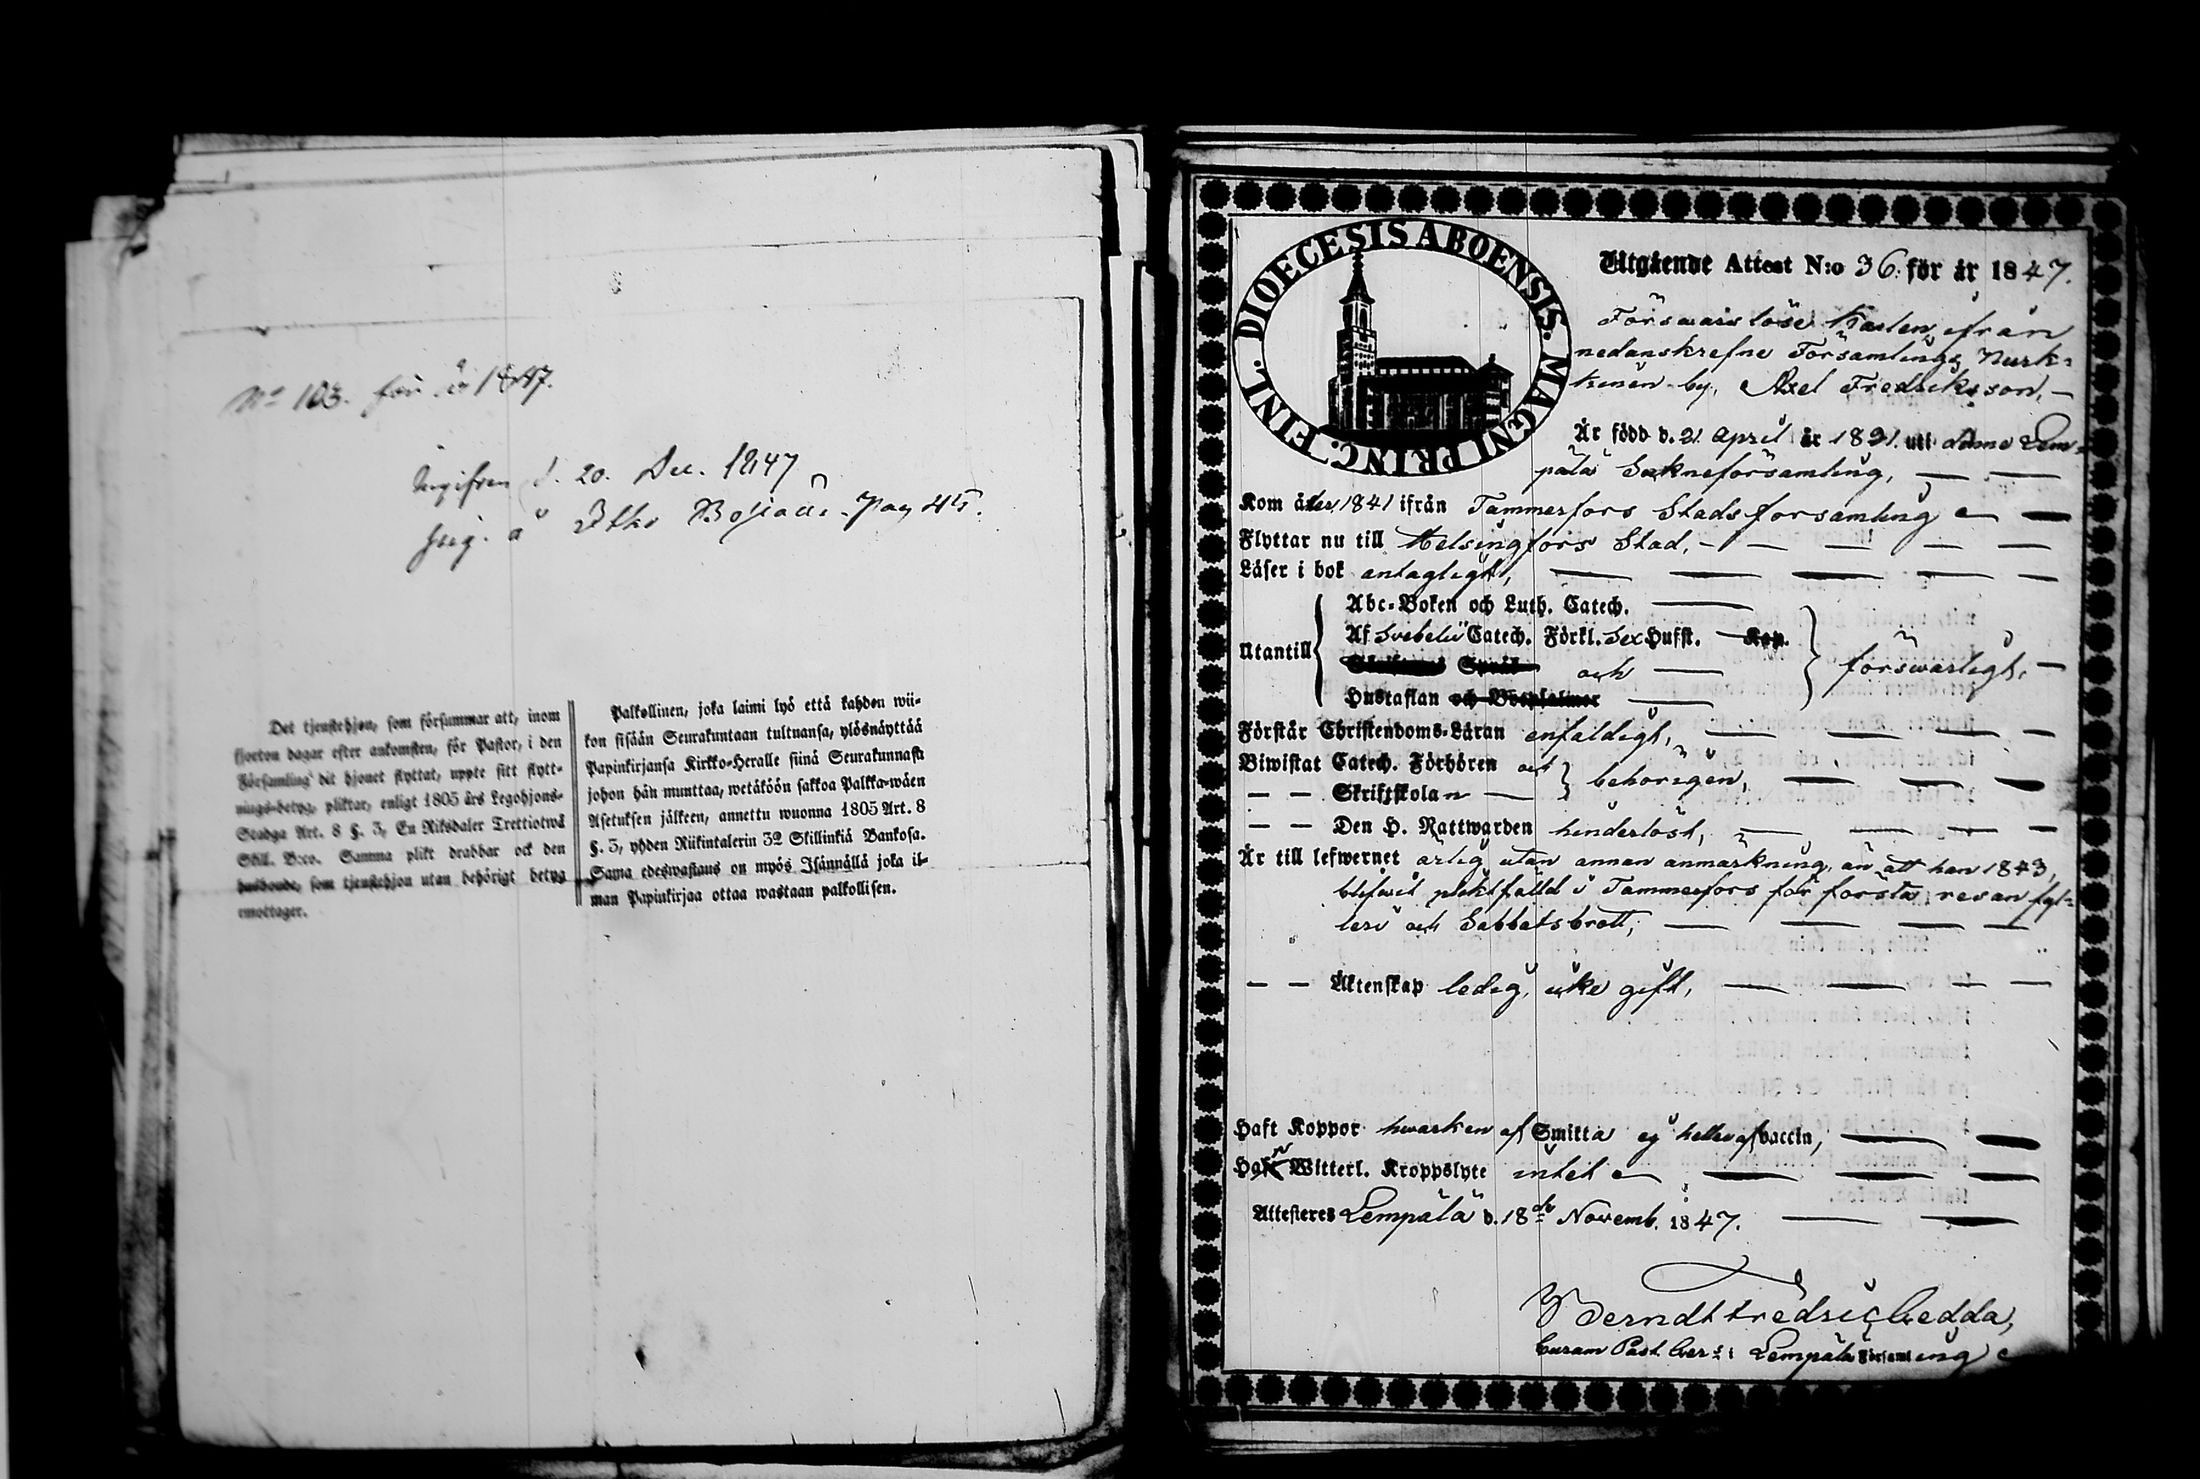 No 103. för år 1847.
Ingifven d. 20. Dec. 1847
pag. 45.
Det tjenstehjon, som försummar att, inom
fjorton dagar efter ankomsten, för Pastor, i den
Församling dit hjonet flyttat, uppte sitt flytt-
nings-betyg, pliktar, enligt 1805 års Legohjons-
Stadga Art. 8 §. 3, En Riksdaler Trettiotwå
Skill. B:co. Samma plikt drabbar ock den
husbonde, som tjenstehjon utan behörigt betyg
emottager.
Palkollinen, joka laimi lyö että kahden wii-
kon sisään Seurakuntaan tultuansa, ylösnäyttää
Papinkirjansa Kirkko-Heralle siinä Seurakunnassa
johon hän munttaa, wetäköön sakkoa Palkka-wäen
Asetuksen jälkeen, annettu wuonna 1805 Art. 8
§. 3, yhden Riikintalerin 32 Skillinkiä Bankosa.
Sama edeswastaus on myös Isännällä joka il-
man Papinkirjaa ottaa wastaan palkollisen.
DIOECESIS ABOENSIS. MAGNI PRINC. FINL.
Utgående Attest N:o 36. för år 1847.
Förswarslöse Karlen, ifrån
nedanskrefne Församlings Nurk-
kinen by, Axel Fredriksson,
Är född d. 21 April år 1821 uti denne Lem-
pälä Sokneförsamling,
Kom åter 1841 ifrån Tammerfors Stadsförsamling
Flyttar nu till Helsingfors Stad,
Läser i bok antagligt,
Abc-Boken och Luth. Catech.
Utantill Af Svebelii Catech. Förkl. Sex Hufst. Kap.
Språk och
Hustaflan och Botpsalmer
förswarligt,
Förstår Christendoms-Läran enfaldigt,
Biwistat Catech. Förhören och
— — Skriftskolan behörigen,
— — Den H. Nattwarden hinderlöst,
Är till lefwernet ärlig utan annan anmärkning, än att han 1843,
blifwit pliktfälld i Tammerfors för första resan fyl-
leri och Sabbatsbrott,
— — Äktenskap ledig, icke gift,
Haft Koppor hwarken af Smitta ej heller af vaccin,
Har Witterl. Kroppslyte intet
Attesteres Lempälä d. 18de Novemb. 1847.
Berndt Fredric Gedda,
Curam Past. Gers: i Lempälä Församling